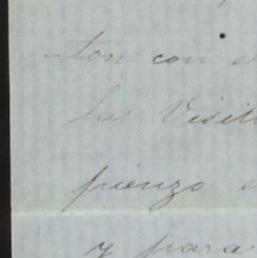 -ton con e
las Visit
pienzo e
y para